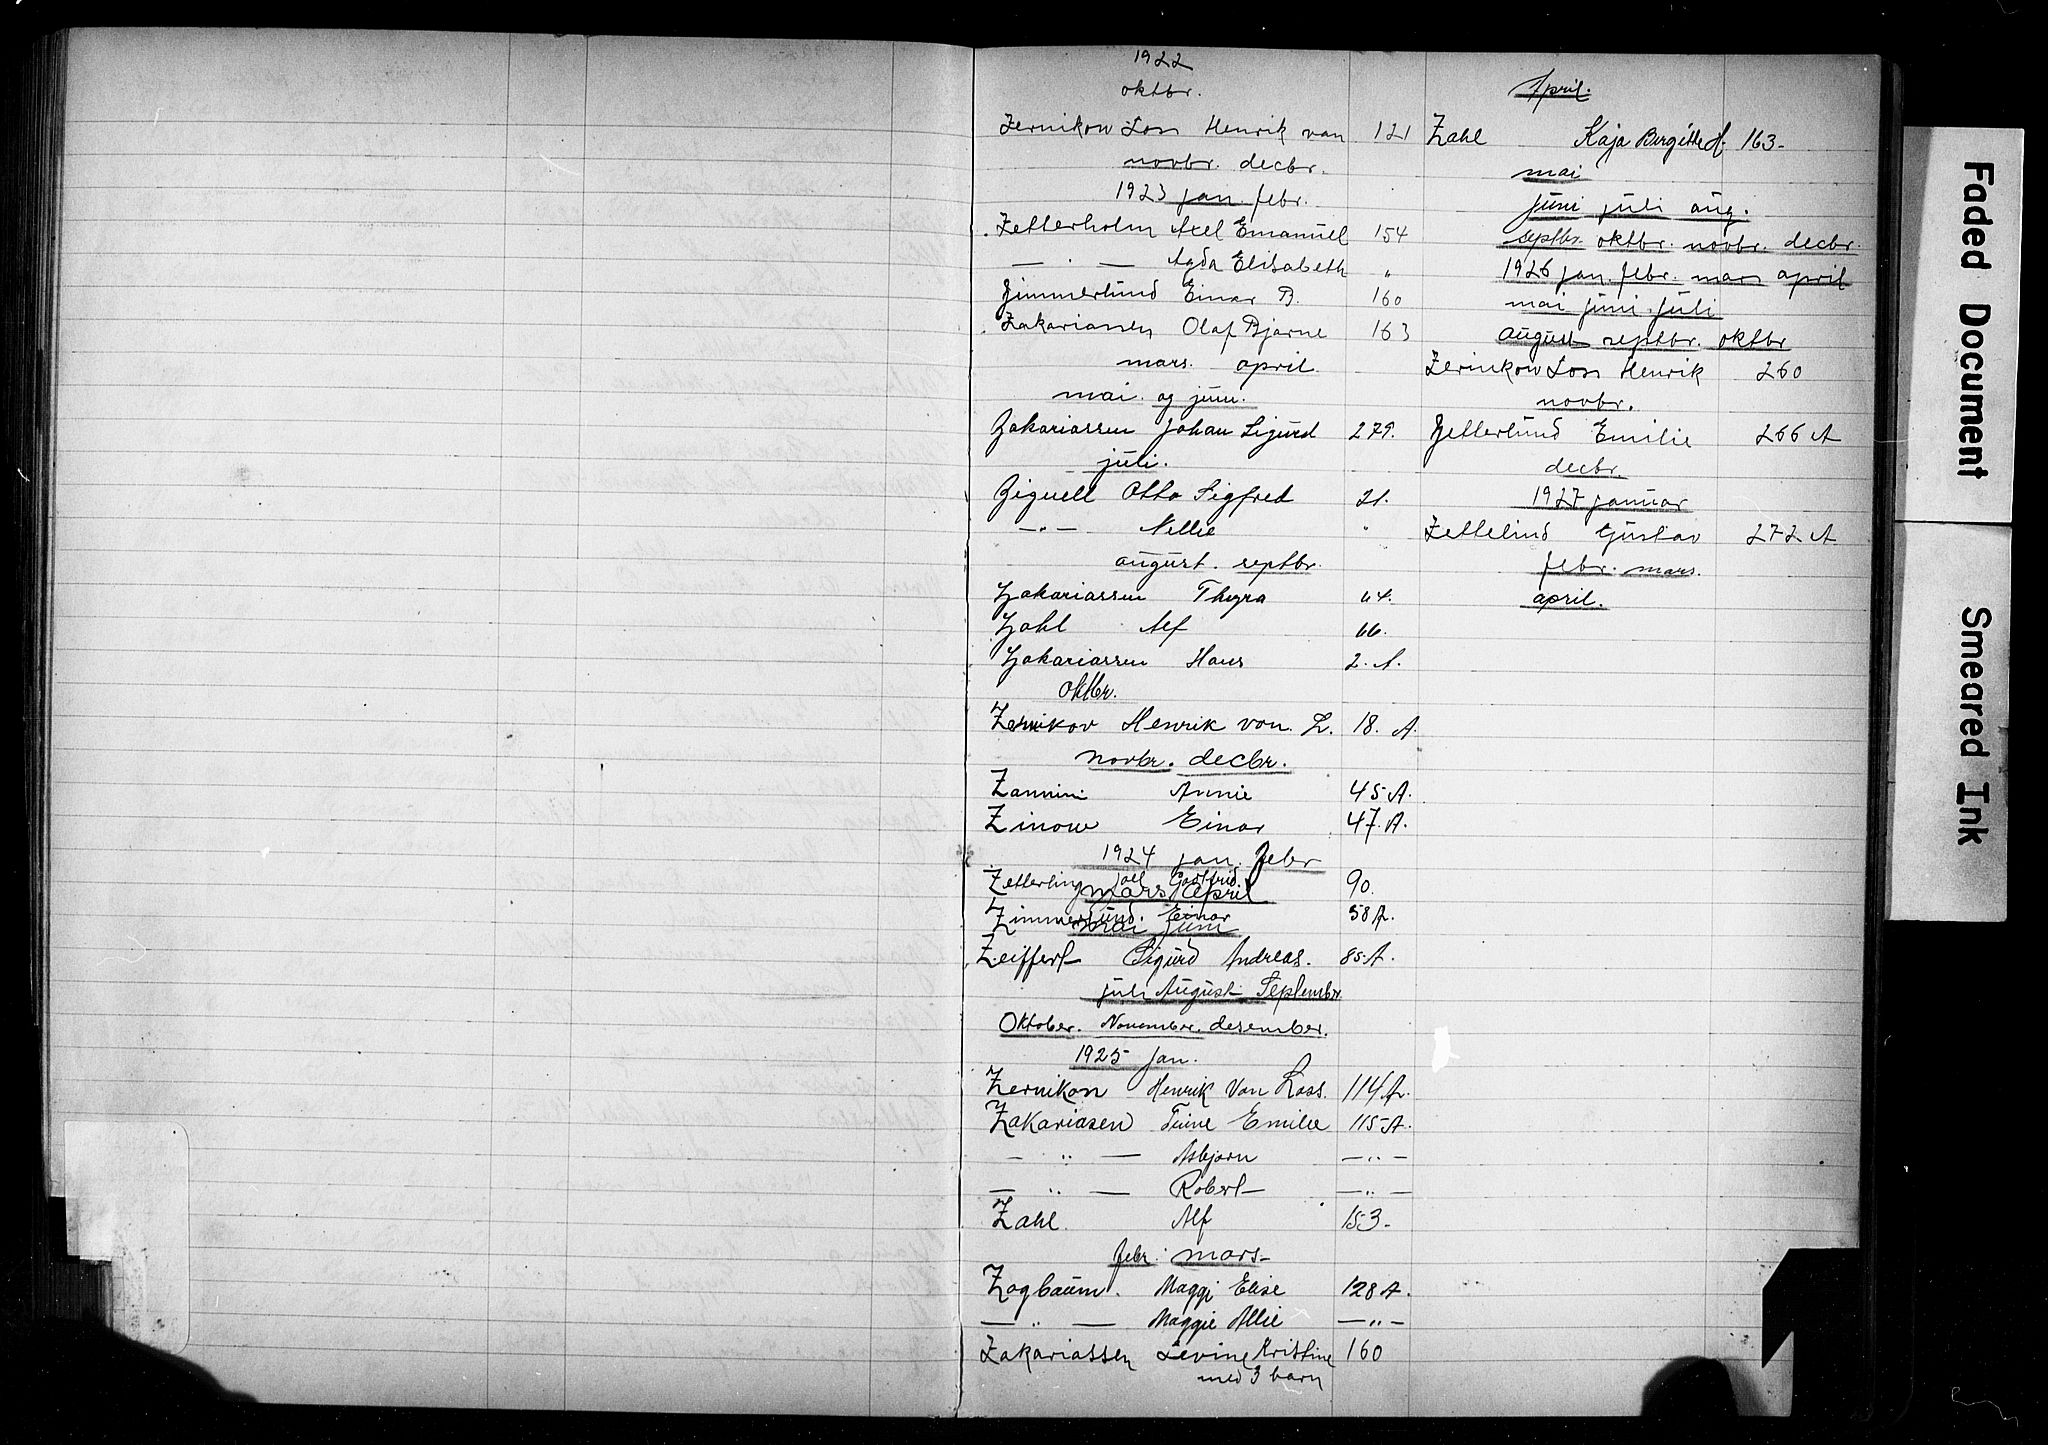 1922
oktbr.
Zernikow Loss Henrik van 121
novbr. decbr.
1923 jan. febr.
Zetterholm Axel Emanuel 154
— " — Agda Elisabeth "
Zimmerlund Einar B. 160
Zakariassen Olaf Bjarne 163
mars. april
mai. og juni.
Zakariassen Johan Sigurd 279.
juli.
Ziguell Otto Sigfred 21.
— " — Nellie "
august. septbr.
Zakariassen Thyra 64.
Zahl Alf 66.
Zakariassen Hans 2. A.
Oktbr.
Zernikov Henrik von. L. 18. A.
Novbr. decbr.
Zannini Annie 45 A.
Zinow Einar 47. A.
1924 jan. febr
Zetterling Joel Gottfrid 90.
mars April
Zimmerlund. Einar 58 A.
mai juni
Zeiffert Sigurd Andreas. 85 A.
juli August September
Oktober. November. desember.
1925 Jan.
Zernikon Henrik Van Loss. 114 A.
Zakariasen Trine Emilie 115 A.
— " — Asbjørn — " —
— " — Robert — " —
Zahl. Alf 153.
febr. mars
Zogbaum. Maggi Elise 128 A.
— " — Maggie Allie — " —
Zakariassen Levine Kristine 160
med 3 barn
April.
Zahl Kaja Birgitte H. 163
mai
juni juli aug.
septbr. oktbr. novbr. decbr.
1926 jan. febr. mars april
mai juni. juli
august septbr. oktbr
Zernikow Loss Henrik 260
novbr.
Zetterlund Emilie 266 A
decbr.
1927 januar
Zettelind Gustav 272 A
febr. mars.
april.
Faded Document
Smeared Ink